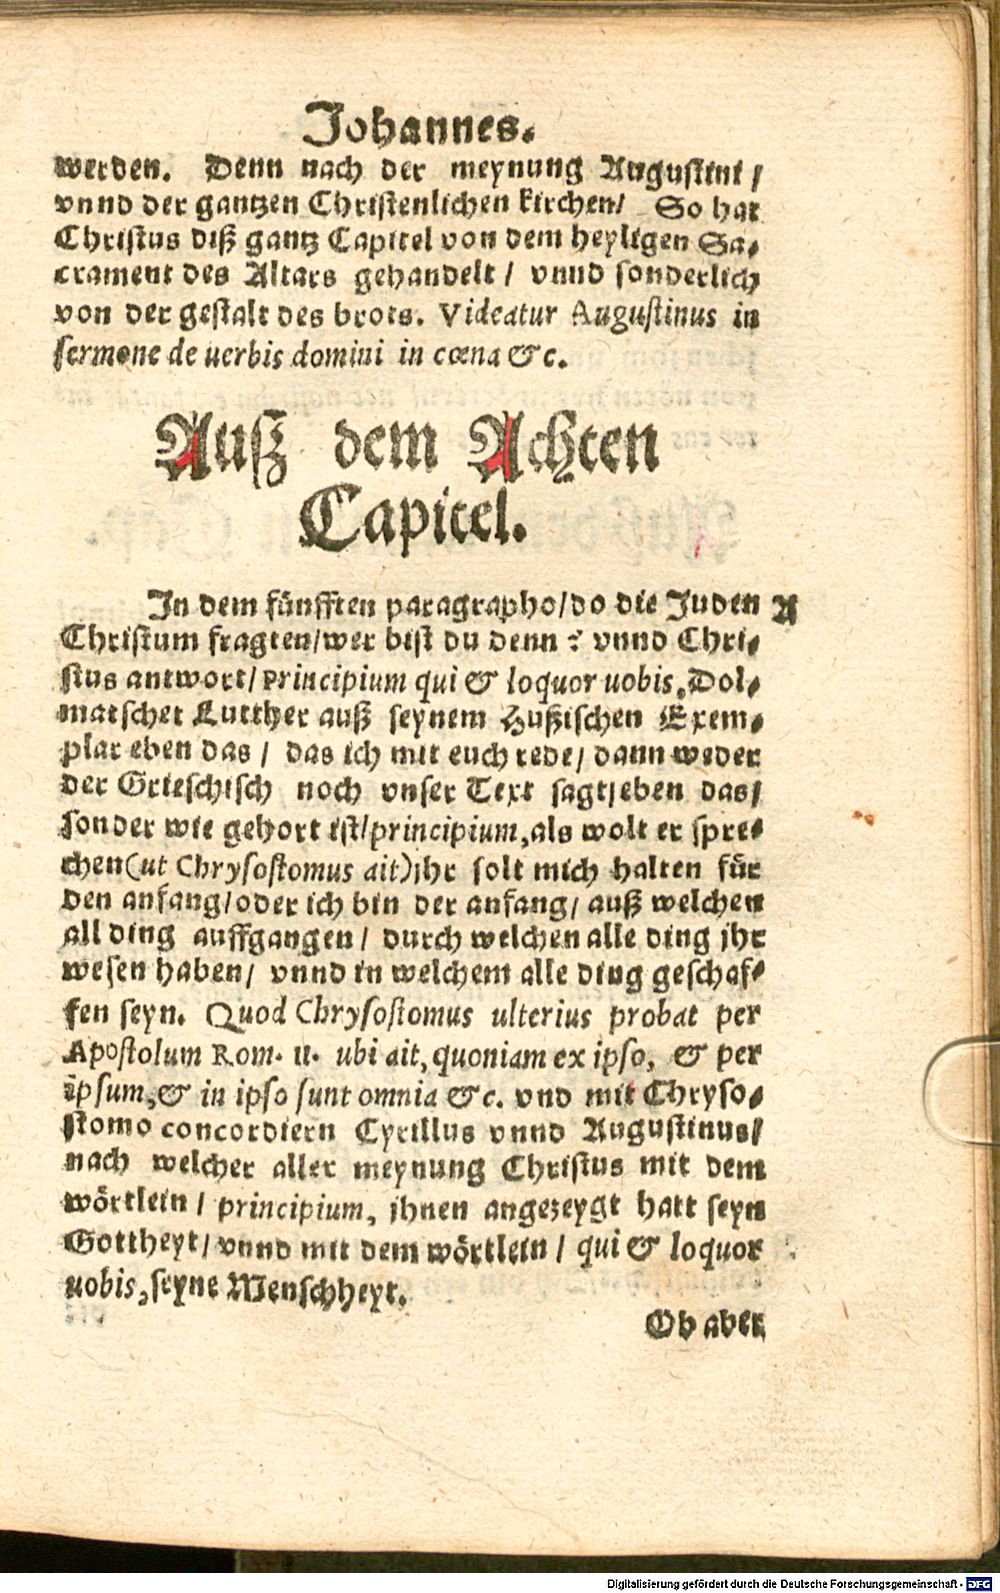 Johannes.
werden. Denn nach der meynung Augustini /
vnnd der gantzen Christenlichen kirchen/ So hat
Christus diß gantz Capitel von dem heyligen Sa-
crament des Altars gehandelt / vnnd sonderlich
von der gestalt des brots. Videatur Augustinus in
sermone de uerbis domini in cœna &c.
Auß dem Achten
Capitel.
In dem fünfften paragrapho/do die Juden A
Christum fragten/wer bist du denn ? vnnd Chri-
stus antwort/principium qui & loquor uobis. Dol-
matschet Lutther auß seynem Hußischen Exem-
plar eben das / das ich mit euch rede/ dann weder
der Grieschisch noch vnser Text sagt/eben das/
sonder wie gehort ist/principium, als wolt er spre-
chen(ut Chrysostomus ait)jhr solt mich halten für
den anfang/oder ich bin der anfang/ auß welchen
all ding auffgangen / durch welchen alle ding jhr
wesen haben/ vnnd in welchem alle ding geschaf-
fen seyn. Quod Chrysostomus ulterius probat per
Apostolum Rom. 11. ubi ait, quoniam ex ipso, & per
ipsum,& in ipso sunt omnia &c. vnd mit Chryso-
stomo concordiern Cyrillus vnnd Augustinus/
nach welcher aller meynung Christus mit dem
wörtlein / principium, jhnen angezeygt hatt seyn
Gottheyt/ vnnd mit dem wörtlein / qui & loquor
uobis, seyne Menschheyt.
Ob aber
Digitalisierung gefördert durch die Deutsche Forschungsgemeinschaft - DFG